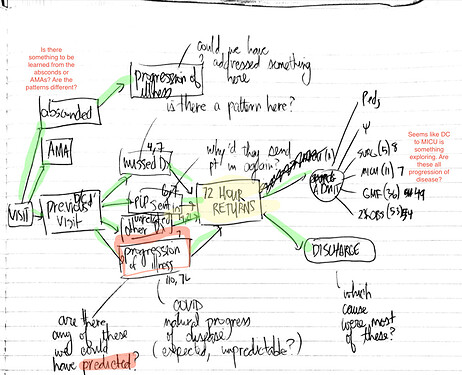 Is there
something to be
learned from the
absconds or
AMAs? Are the
patterns different?
could we have
addressed something
here
progression of
illness
is there a pattern here?
absconded
AMA
VISIT
Previous
visit
DC'd
4,7
missed D
6,7
PCP
sent in
unrelated
other
progression
of illness
110, 72
why'd they send
pt in again?
72 HOUR
RETURNS
(11)
ADMIT
Peds
Ψ
SURG (5) 8
MICU (11) 7
GMF (36) 49
Seems like DC
to MICU is
something
exploring. Are
these all
progression of
disease?
DISCHARGE
which
cause
were most
of these?
COVID
natural progress
of disease
(expected, unpredictable?)
are there
any of these
we could
have predicted?